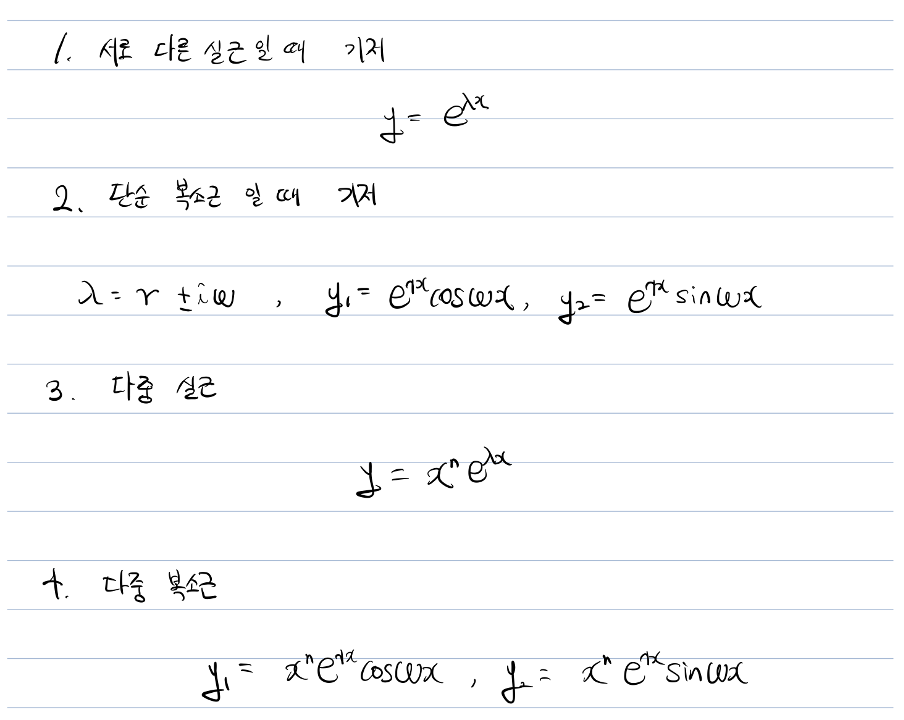 1. 서로 다른 실근일 때 기저
y = e^{λx}
2. 단순 복소근 일 때 기저
λ = r ± iω , y₁ = e^{rx}cosωx, y₂ = e^{rx}sinωx
3. 다중 실근
y = xⁿe^{λx}
4. 다중 복소근
y₁ = xⁿe^{rx}cosωx , y₂ = xⁿe^{rx}sinωx